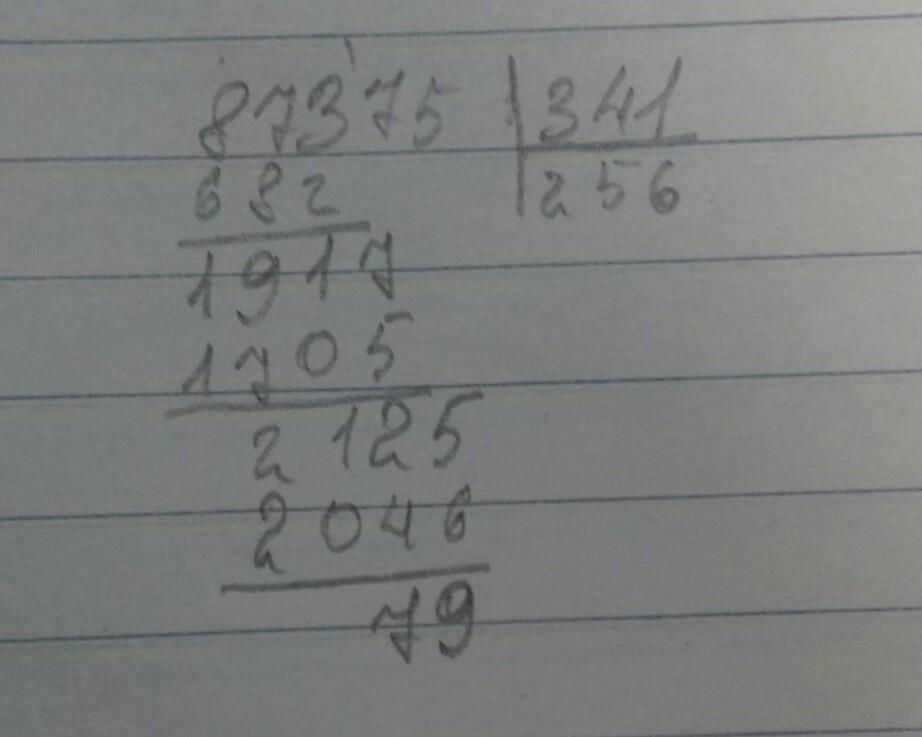 87375 341
682 256
1917
1705
2125
2046
79